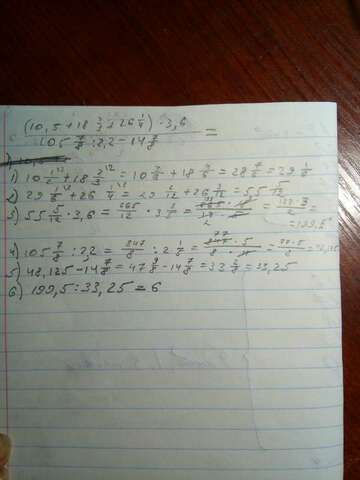 (10,5+18 2/3+26 1/4)·3,6
=
105 7/8:2,2-14 7/8
1) 10 1/2+18 2/3=10 3/6+18 4/6=28 7/6=29 1/6
2) 29 1/6+26 1/4=29 2/12+26 3/12=55 5/12
3) 55 5/12·3,6=665/12·3 3/5= =133·3/2=
=199,5
4) 105 7/8:2,2=847/8:2 1/5=
5) 48,125-14 7/8=47 9/8-14 7/8=33 2/8=33,25
6) 199,5:33,25=6